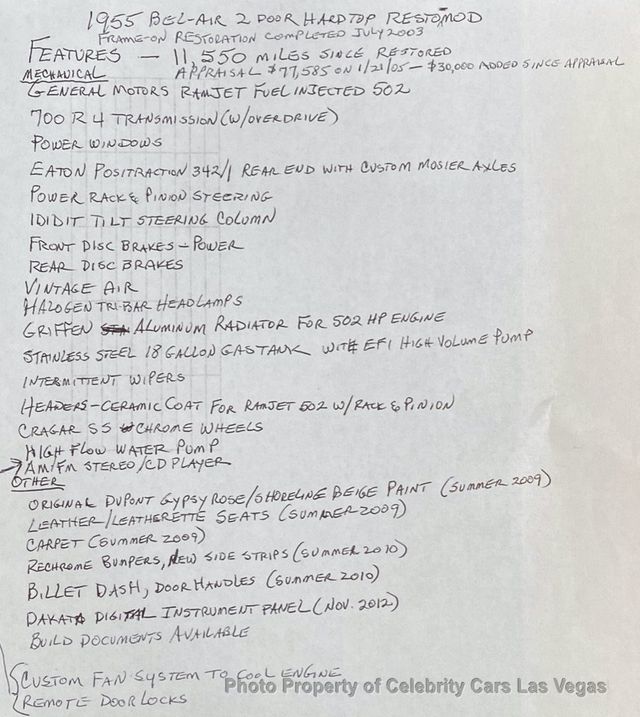 1955 BEL-AIR 2 DOOR HARDTOP RESTOMOD
FRAME-ON RESTORATION COMPLETED JULY 2003
FEATURES — 11,550 MILES SINCE RESTORED
MECHANICAL APPRAISAL $77,585 ON 1/21/05 — $30,000 ADDED SINCE APPRAISAL
GENERAL MOTORS RAMJET FUEL INJECTED 502
700 R 4 TRANSMISSION (W/OVERDRIVE)
POWER WINDOWS
EATON POSITRACTION 342/1 REAR END WITH CUSTOM MOSIER AXLES
POWER RACK & PINION STEERING
IDIDIT TILT STEERING COLUMN
FRONT DISC BRAKES - POWER
REAR DISC BRAKES
VINTAGE AIR
HALOGEN TRI-BAR HEADLAMPS
GRIFFEN ALUMINUM RADIATOR FOR 502 HP ENGINE
STAINLESS STEEL 18 GALLON GAS TANK WITH EFI HIGH VOLUME PUMP
INTERMITTENT WIPERS
HEADERS-CERAMIC COAT FOR RAMJET 502 W/RACK & PINION
CRAGAR SS CHROME WHEELS
HIGH FLOW WATER PUMP
AM/FM STEREO/CD PLAYER
OTHER
ORIGINAL DUPONT GYPSY ROSE/SHORELINE BEIGE PAINT (SUMMER 2009)
LEATHER/LEATHERETTE SEATS (SUMMER 2009)
CARPET (SUMMER 2009)
RECHROME BUMPERS, NEW SIDE STRIPS (SUMMER 2010)
BILLET DASH, DOOR HANDLES (SUMMER 2010)
DAKATA DIGITAL INSTRUMENT PANEL (NOV. 2012)
BUILD DOCUMENTS AVAILABLE
CUSTOM FAN SYSTEM TO COOL ENGINE
REMOTE DOOR LOCKS
Photo Property of Celebrity Cars Las Vegas